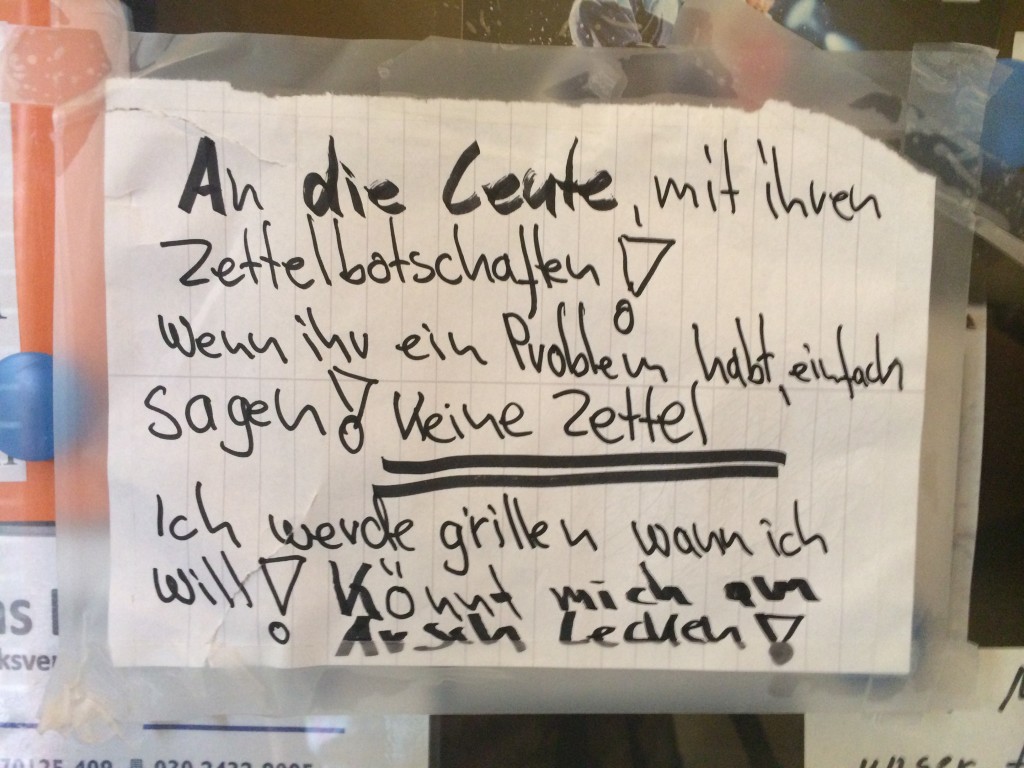 An die Leute, mit ihren
Zettelbotschaften!
Wenn ihr ein Problem habt, einfach
sagen! Keine Zettel
Ich werde grillen wann ich
will! Könnt mich am
Arsch Lecken!
unser